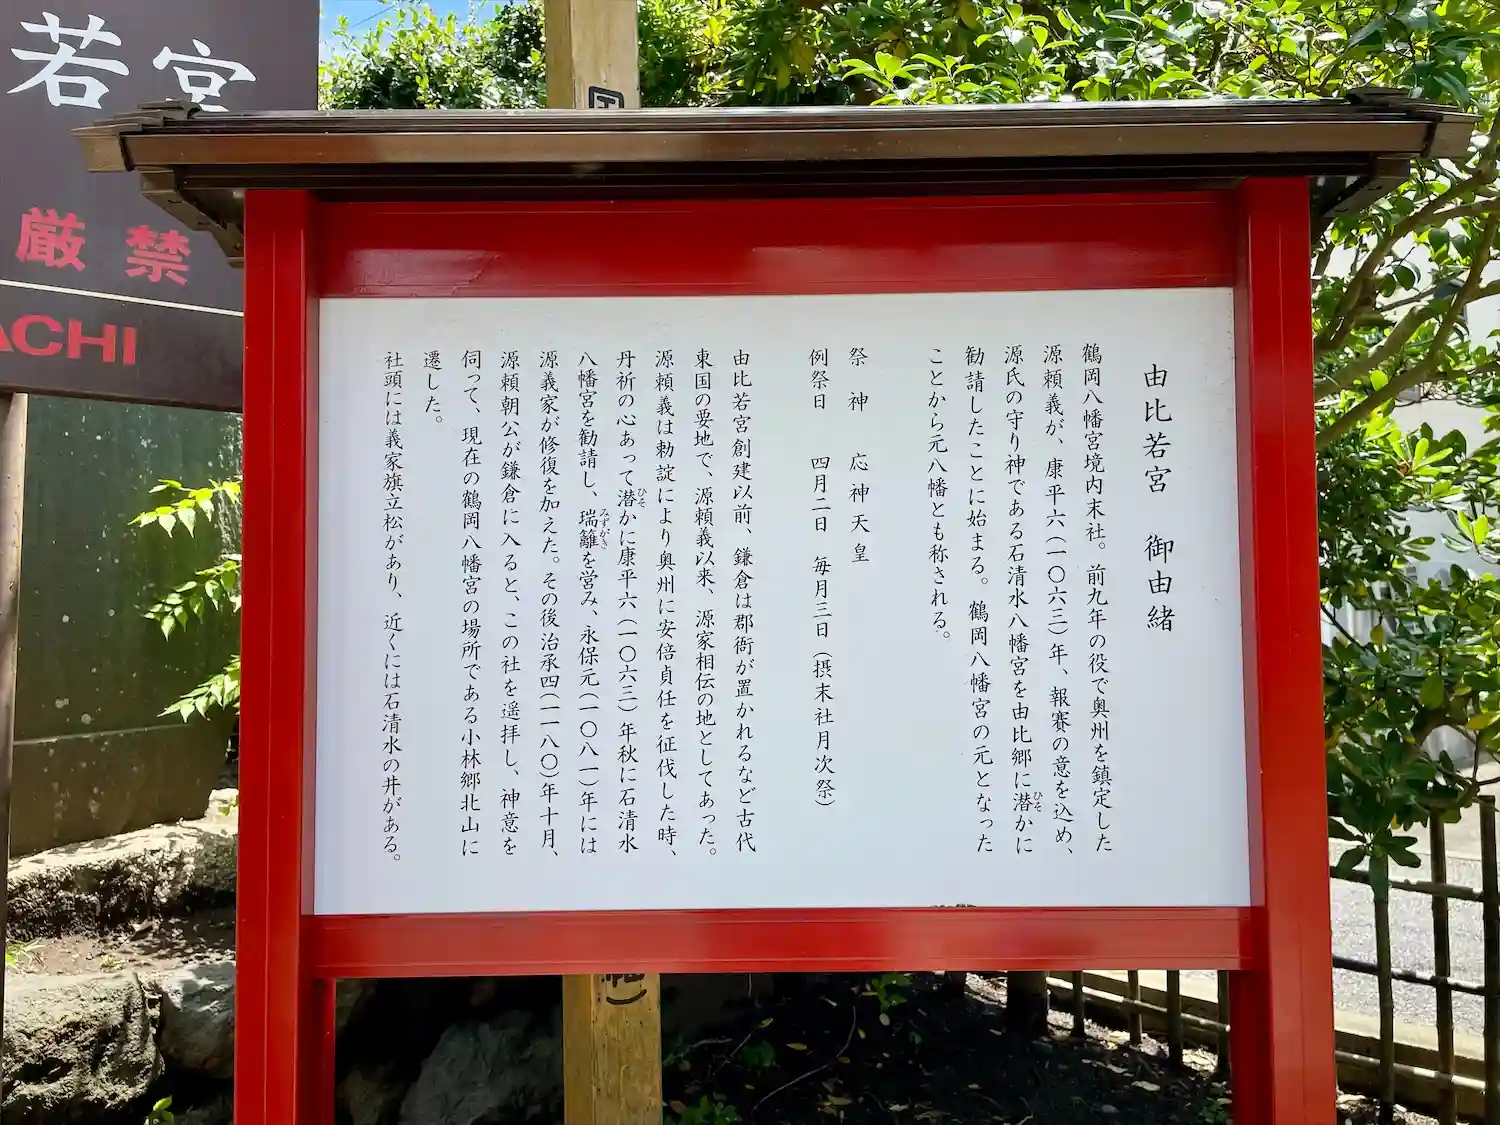 由比若宮　御由緒
鶴岡八幡宮境内末社。前九年の役で奥州を鎮定した
源頼義が、康平六（一〇六三）年、報賽の意を込め、
源氏の守り神である石清水八幡宮を由比郷に潜かに
ひそ
勧請したことに始まる。鶴岡八幡宮の元となった
ことから元八幡とも称される。
祭　神　応神天皇
例祭日　四月二日　毎月三日（摂末社月次祭）
由比若宮創建以前、鎌倉は郡衙が置かれるなど古代
東国の要地で、源頼義以来、源家相伝の地としてあった。
源頼義は勅諚により奥州に安倍貞任を征伐した時、
丹祈の心あって潜かに康平六（一〇六三）年秋に石清水
ひそ
八幡宮を勧請し、瑞籬を営み、永保元（一〇八一）年には
みずがき
源義家が修復を加えた。その後治承四（一一八〇）年十月、
源頼朝公が鎌倉に入ると、この社を遥拝し、神意を
伺って、現在の鶴岡八幡宮の場所である小林郷北山に
遷した。
社頭には義家旗立松があり、近くには石清水の井がある。
若宮
厳禁
ACHI